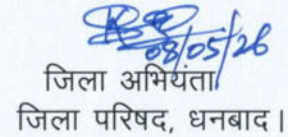 08/05/26
जिला अभियंता
जिला परिषद, धनबाद।